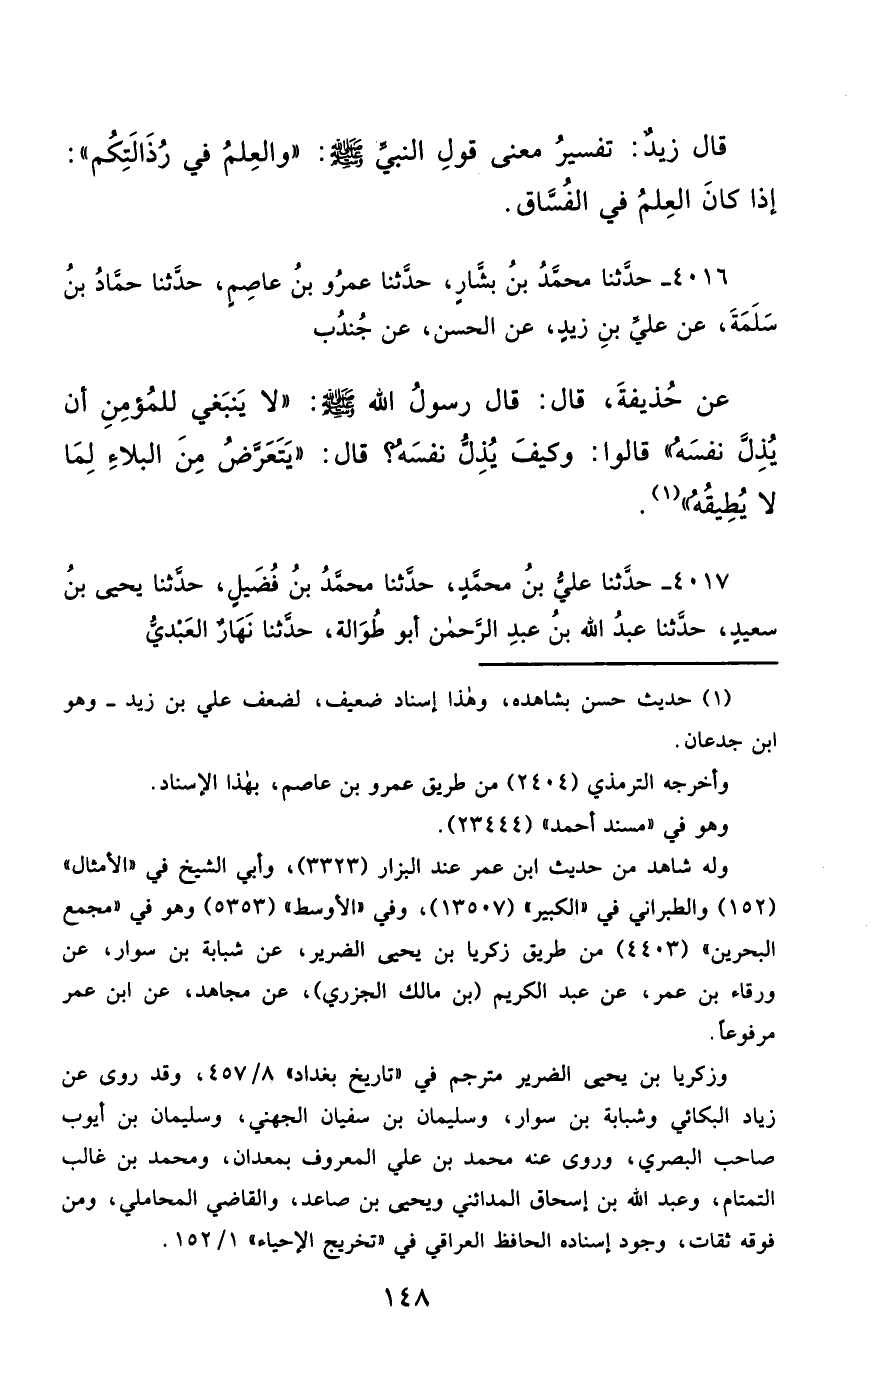 قال زيدٌ: تفسيرُ معنى قولِ النبيِّ ﷺ: «والعِلمُ في رُذَالَتِكُم»:
إذا كانَ العِلمُ في الفُسَّاق.
٤٠١٦ـ حدَّثنا محمَّدُ بنُ بشَّارٍ، حدَّثنا عمرُو بنُ عاصِمٍ، حدَّثنا حمَّادُ بنُ
سَلَمَةَ، عن عليِّ بنِ زيدٍ، عن الحسن، عن جُندُب
عن حُذيفةَ، قال: قال رسولُ الله ﷺ: «لا يَنبَغي للمُؤمِنِ أن
يُذِلَّ نفسَهُ» قالوا: وكيفَ يُذِلُّ نفسَهُ؟ قال: «يَتَعَرَّضُ مِنَ البلاءِ لِمَا
لا يُطِيقُهُ»(١).
٤٠١٧ـ حدَّثنا عليُّ بنُ محمَّدٍ، حدَّثنا محمَّدُ بنُ فُضَيلٍ، حدَّثنا يحيى بنُ
سعيدٍ، حدَّثنا عبدُ الله بنُ عبدِ الرَّحمٰن أبو طُوَالة، حدَّثنا نَهَارٌ العَبْديُّ
(١) حديث حسن بشاهده، وهٰذا إسناد ضعيف، لضعف علي بن زيد ـ وهو
ابن جدعان.
وأخرجه الترمذي (٢٤٠٤) من طريق عمرو بن عاصم، بهٰذا الإسناد.
وهو في «مسند أحمد» (٢٣٤٤٤).
وله شاهد من حديث ابن عمر عند البزار (٣٣٢٣)، وأبي الشيخ في «الأمثال»
(١٥٢) والطبراني في «الكبير» (١٣٥٠٧)، وفي «الأوسط» (٥٣٥٣) وهو في «مجمع
البحرين» (٤٤٠٣) من طريق زكريا بن يحيى الضرير، عن شبابة بن سوار، عن
ورقاء بن عمر، عن عبد الكريم (بن مالك الجزري)، عن مجاهد، عن ابن عمر
مرفوعاً.
وزكريا بن يحيى الضرير مترجم في «تاريخ بغداد» ٤٥٧/٨، وقد روى عن
زياد البكائي وشبابة بن سوار، وسليمان بن سفيان الجهني، وسليمان بن أيوب
صاحب البصري، وروى عنه محمد بن علي المعروف بمعدان، ومحمد بن غالب
التمتام، وعبد الله بن إسحاق المدائني ويحيى بن صاعد، والقاضي المحاملي، ومن
فوقه ثقات، وجود إسناده الحافظ العراقي في «تخريج الإحياء» ١٥٢/١.
١٤٨